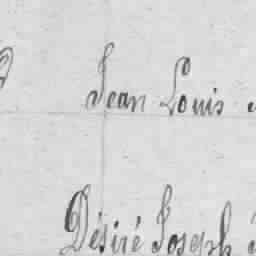 Jean Louis
Désiré Joseph